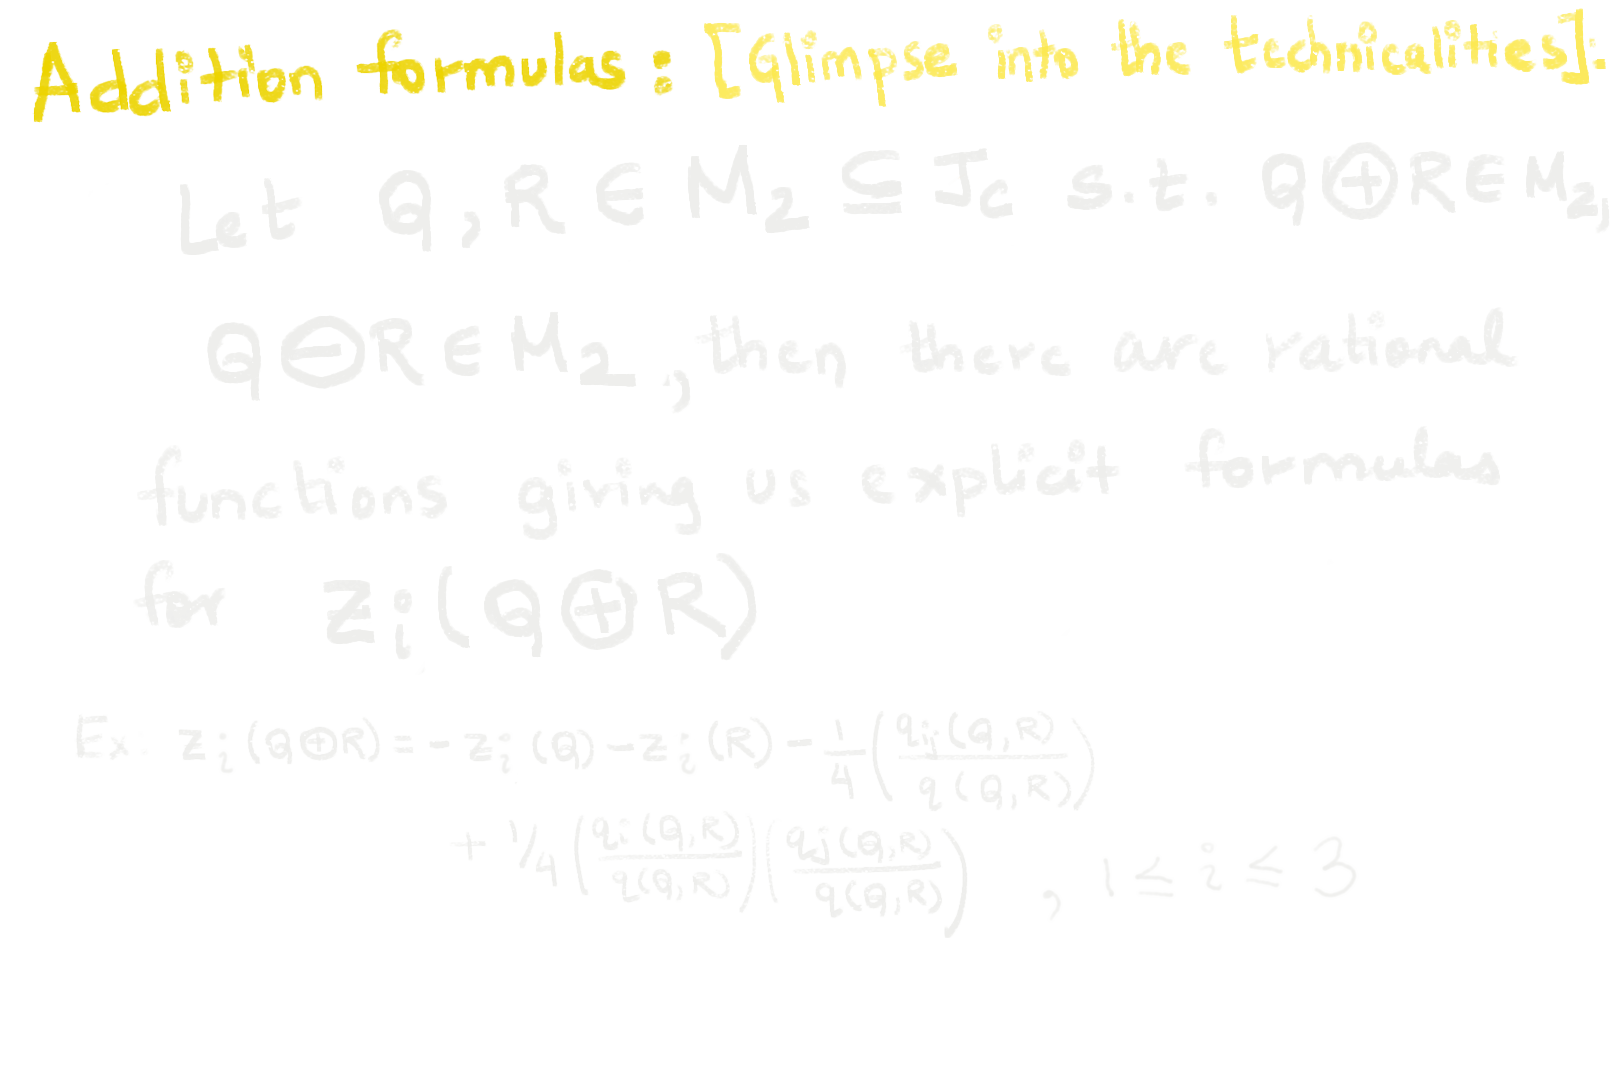 Addition formulas : [Glimpse into the technicalities].
Let Q, R ∈ M₂ ⊆ J_C s.t. Q⊕R ∈ M₂,
Q⊖R ∈ M₂, then there are rational
functions giving us explicit formulas
for Z_i(Q⊕R)
Ex. Z_i(Q⊕R) = -Z_i(Q) - Z_i(R) - 1/4 (q_ij(Q,R) / q(Q,R))
+ 1/4 (q_i(Q,R) / q(Q,R)) (q_j(Q,R) / q(Q,R)) , 1 ≤ i ≤ 3